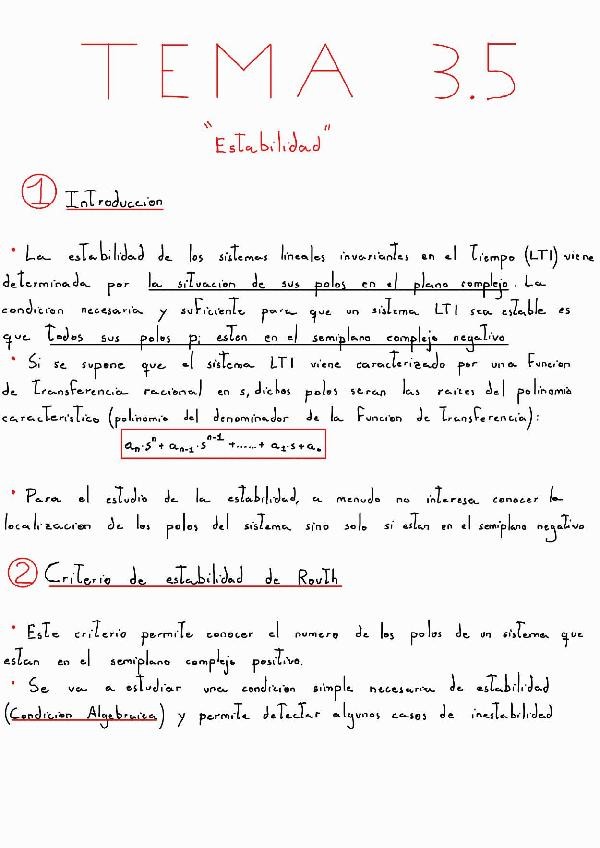 TEMA 3.5
"Estabilidad"
1 Introduccion
· La estabilidad de los sistemas lineales invariantes en el Tiempo (LTI) viene
determinada por la situacion de sus polos en el plano complejo. La
condicion necesaria y suficiente para que un sistema LTI sea estable es
que todos sus polos pi esten en el semiplano complejo negativo
· Si se supone que el sistema LTI viene caracterizado por una Funcion
de Transferencia racional en s, dichos polos seran las raices del polinomio
caracteristico (polinomio del denominador de la Funcion de Transferencia):
aₙ·sⁿ + aₙ₋₁·sⁿ⁻¹ +......+ a₁·s+a₀
· Para el estudio de la estabilidad, a menudo no interesa conocer la
localizacion de los polos del sistema sino solo si estan en el semiplano negativo
2 Criterio de estabilidad de Routh
· Este criterio permite conocer el numero de los polos de un sistema que
estan en el semiplano complejo positivo.
· Se va a estudiar una condicion simple necesaria de estabilidad
(Condicion Algebraica) y permite detectar algunos casos de inestabilidad